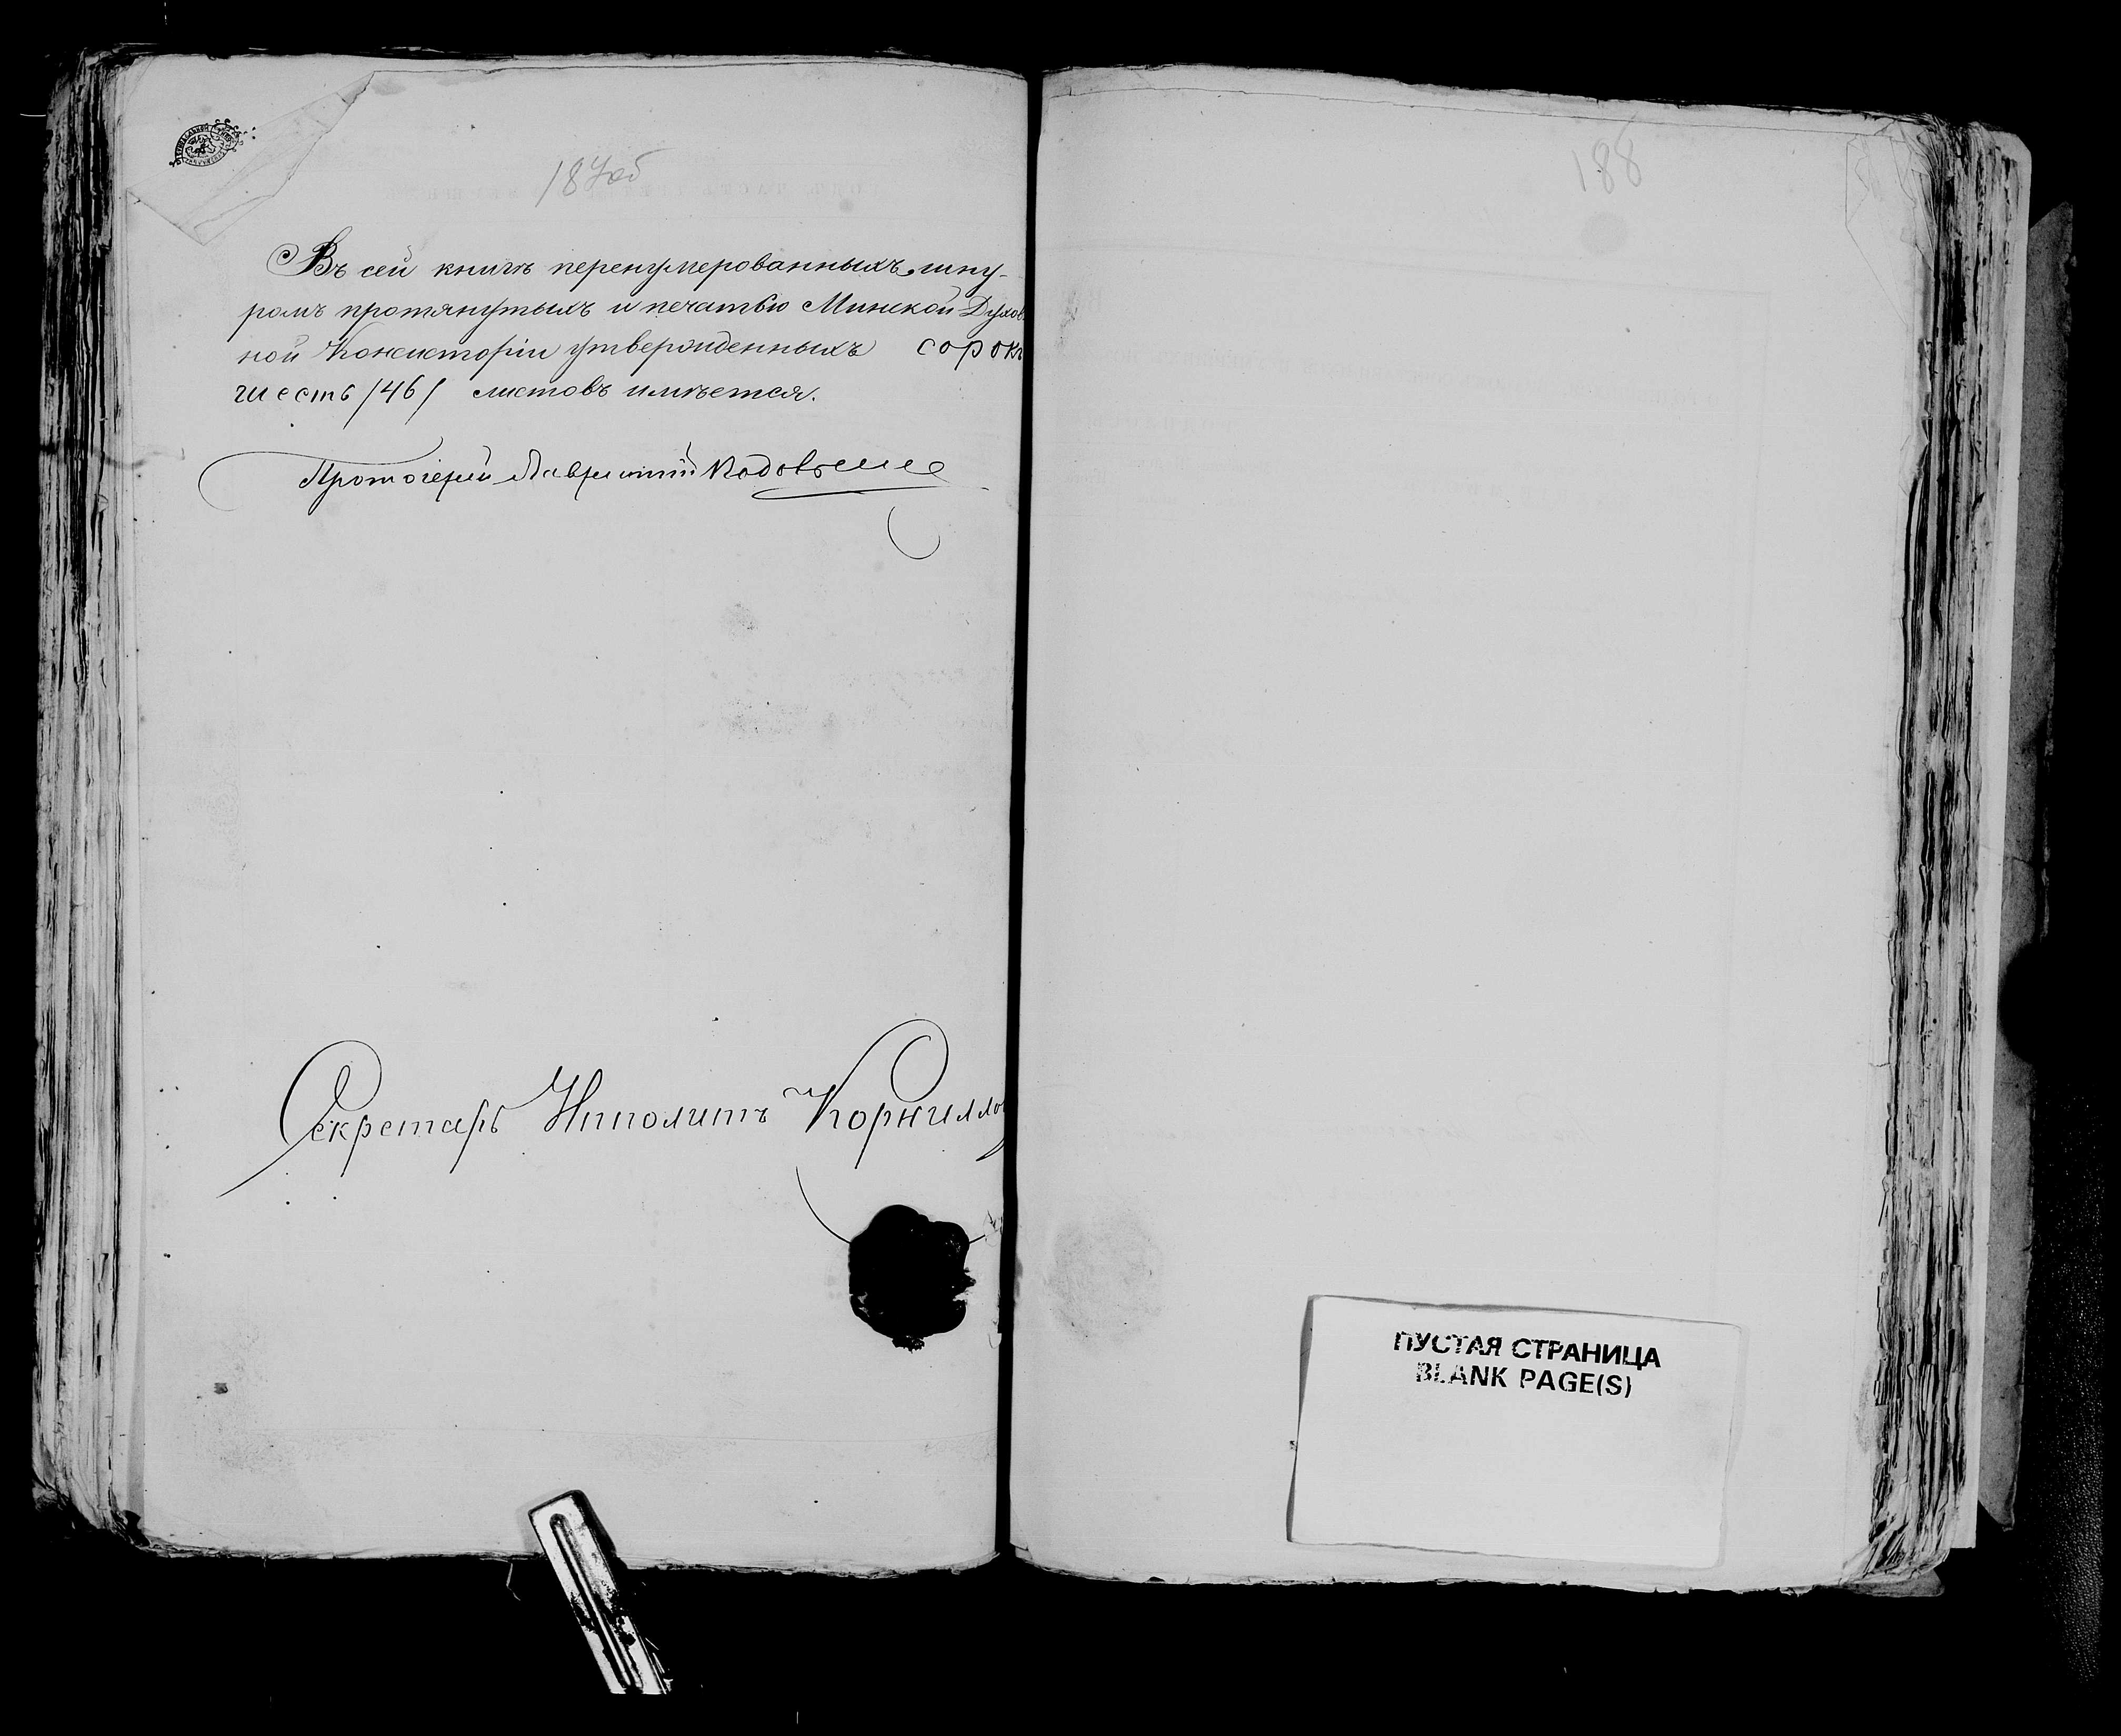 187об
Въ сей книгѣ перенумерованныхъ, шну-
ромъ протянутыхъ и печатью Минской Духов
ной Консисторіи утвержденныхъ сорокъ
шесть /46/ листовъ имѣется.
Протоіерей Лаврентій
Секретарь Ипполитъ Корнилло
188
ПУСТАЯ СТРАНИЦА
BLANK PAGE(S)